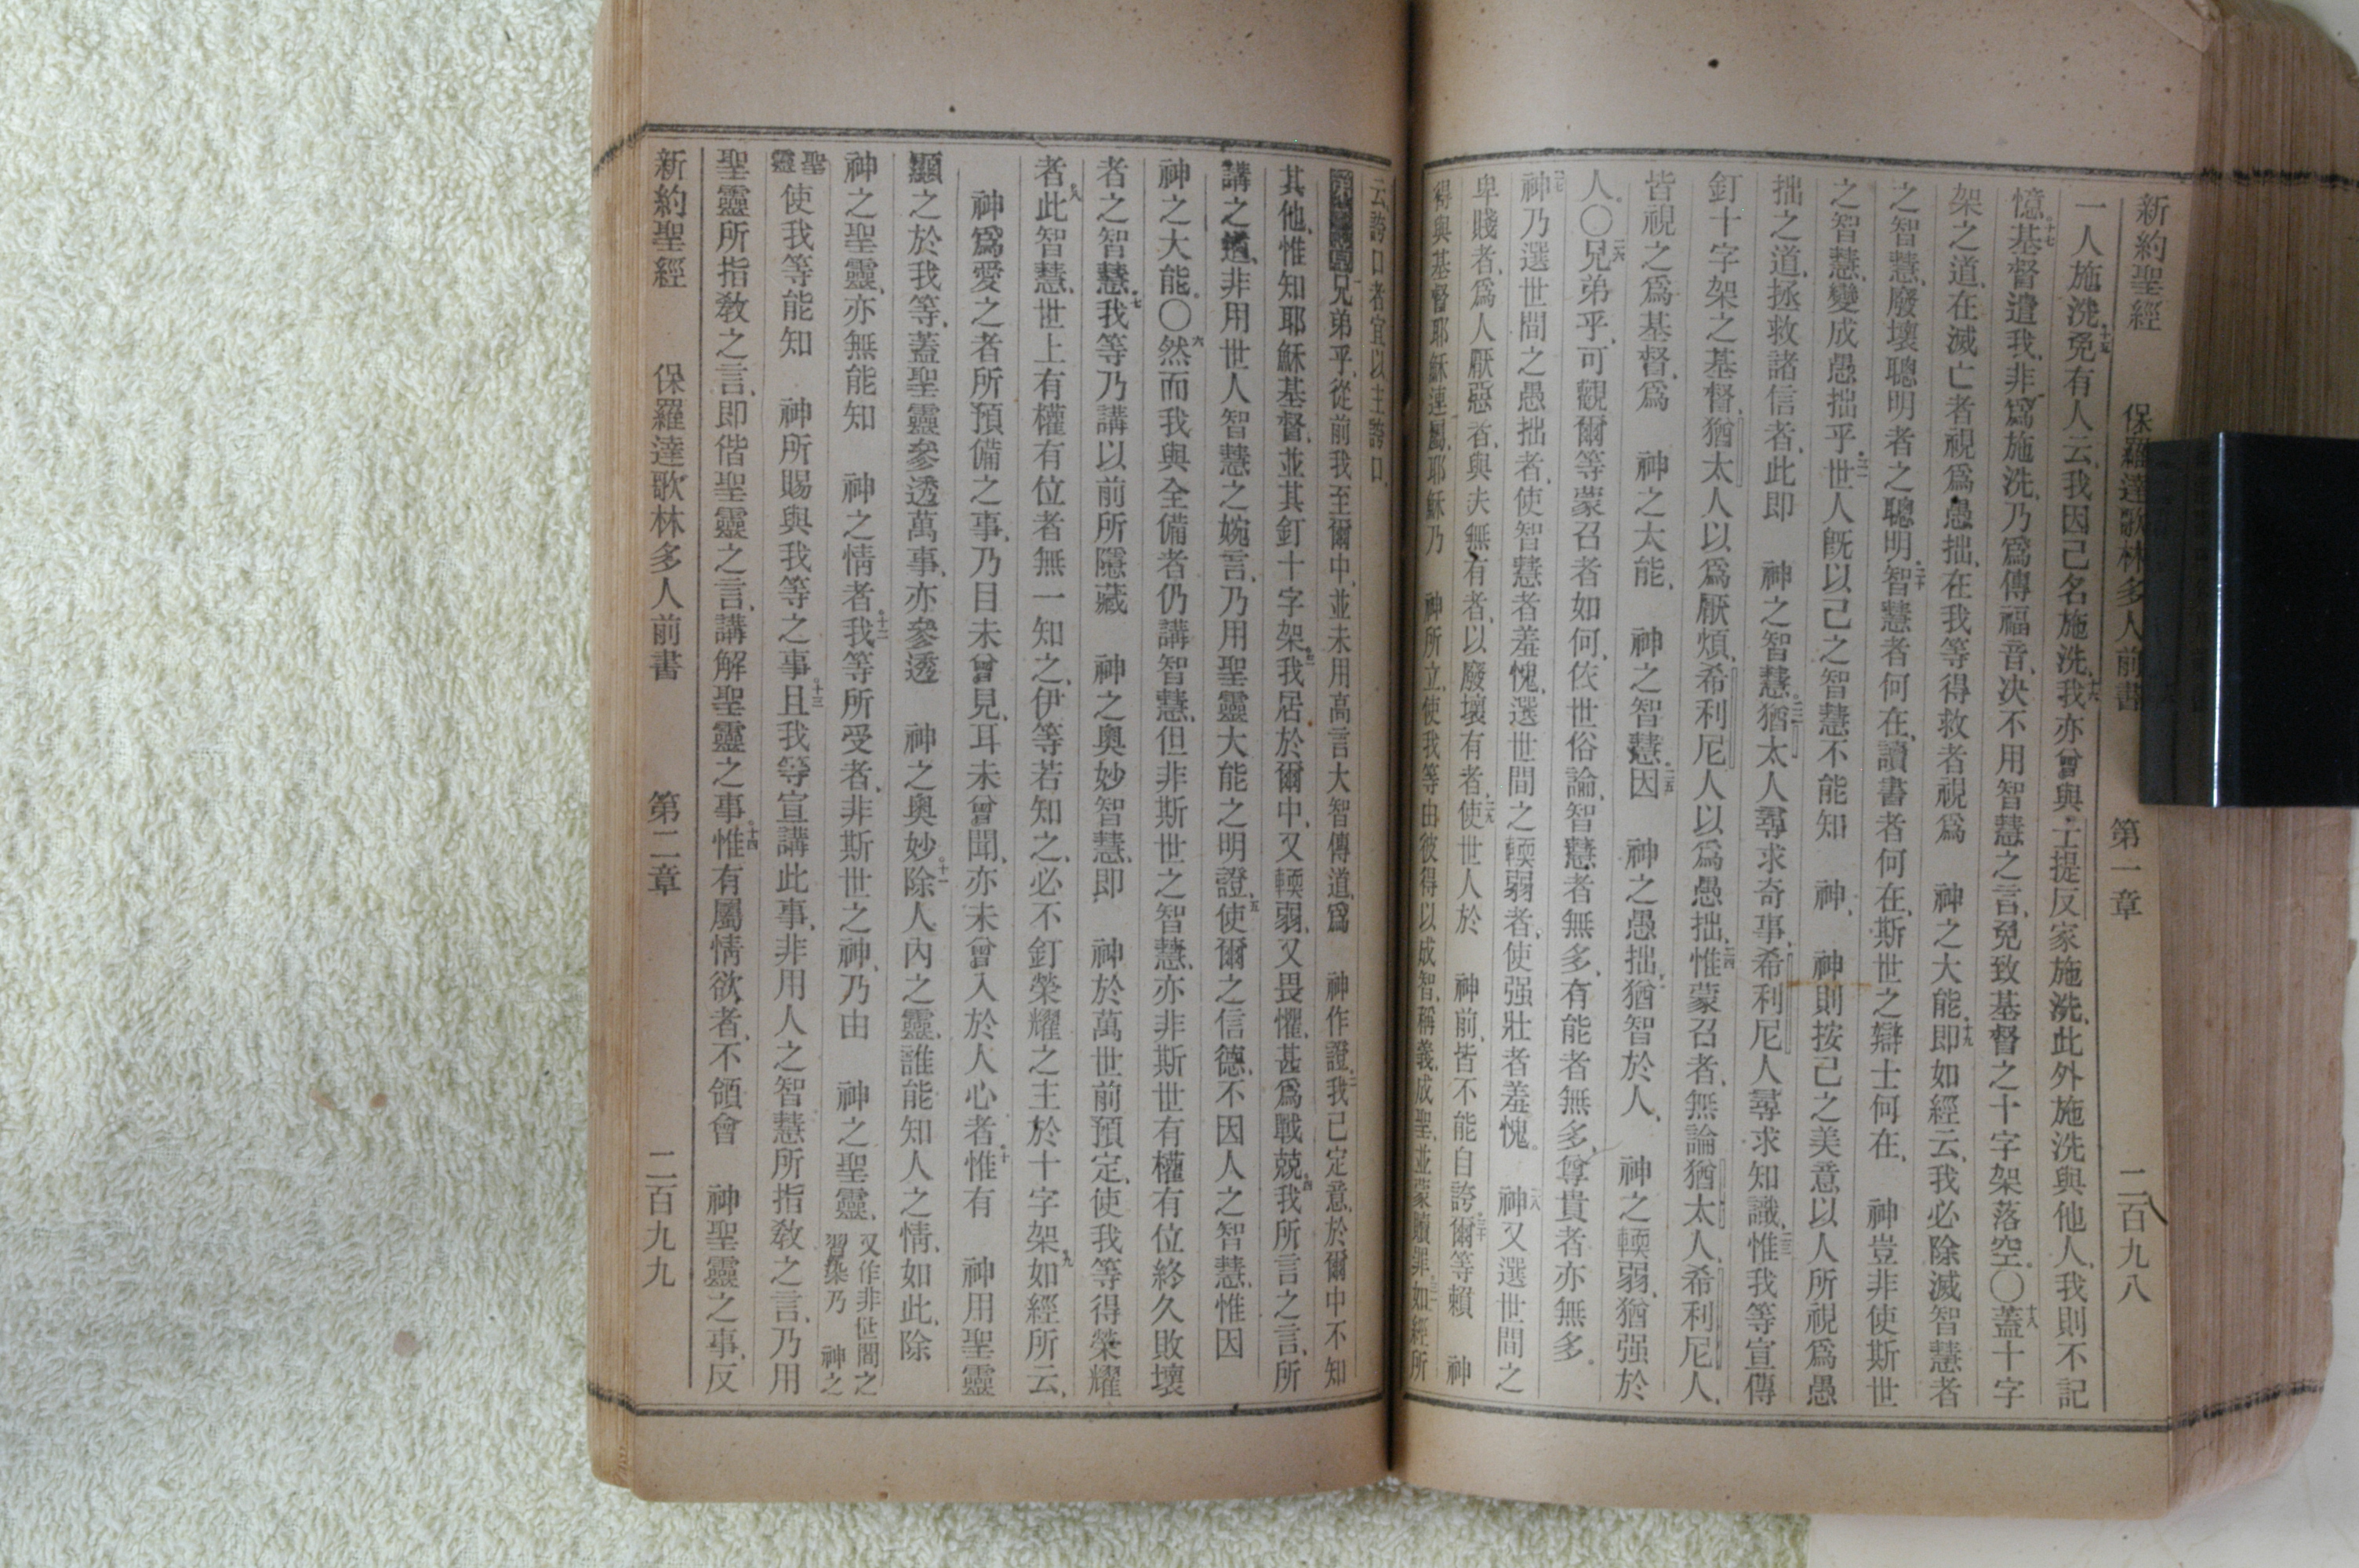 新約聖經 保羅達歌林多人前書 第一章 二百九八
一人施洗、十五免有人云、我因己名施洗、十六我亦曾與士提反家施洗、此外施洗與他人、我則不記
憶。十七基督遣我、非爲施洗、乃爲傳福音、决不用智慧之言、免致基督之十字架落空。〇十八蓋十字
架之道、在滅亡者視爲愚拙、在我等得救者視爲 神之大能、十九即如經云、我必除滅智慧者
之智慧、廢壞聰明者之聰明。二十智慧者何在、讀書者何在、斯世之辯士何在、 神豈非使斯世
之智慧、變成愚拙乎。二一世人旣以己之智慧不能知 神、 神則按己之美意、以人所視爲愚
拙之道、拯救諸信者、此即 神之智慧。二二猶太人尋求奇事、希利尼人尋求知識、二三惟我等宣傳
釘十字架之基督、猶太人以爲厭煩、希利尼人以爲愚拙、二四惟蒙召者、無論猶太人、希利尼人、
皆視之爲基督、爲 神之大能、 神之智慧。二五因 神之愚拙、猶智於人、 神之輭弱、猶强於
人。〇二六兄弟乎、可觀爾等蒙召者如何、依世俗論、智慧者無多、有能者無多、尊貴者亦無多。
二七神乃選世間之愚拙者、使智慧者羞愧、選世間之輭弱者、使强壯者羞愧。二八神又選世間之
卑賤者、爲人厭惡者、與夫無有者、以廢壞有者、二九使世人於 神前、皆不能自誇。三十爾等賴 神
得與基督耶穌連屬、耶穌乃 神所立、使我等由彼得以成智、稱義、成聖、並蒙贖罪、三一如經所
云、誇口者宜以主誇口。
一兄弟乎、從前我至爾中、並未用高言大智傳道、爲 神作證、二我已定意、於爾中不知
其他、惟知耶穌基督、並其釘十字架。三我居於爾中、又輭弱、又畏懼、甚爲戰兢。四我所言之言、所
講之道、非用世人智慧之婉言、乃用聖靈大能之明證、五使爾之信德、不因人之智慧、惟因
神之大能。〇六然而我與全備者仍講智慧、但非斯世之智慧、亦非斯世有權有位終久敗壞
者之智慧。七我等乃講以前所隱藏 神之奧妙智慧、即 神於萬世前預定、使我等得榮耀
者、八此智慧、世上有權有位者無一知之、伊等若知之、必不釘榮耀之主於十字架。九如經所云、
神爲愛之者所預備之事、乃目未曾見、耳未曾聞、亦未曾入於人心者。十惟有 神用聖靈
顯之於我等、蓋聖靈參透萬事、亦參透 神之奧妙。十一除人內之靈、誰能知人之情、如此、除
神之聖靈、亦無能知 神之情者。十二我等所受者、非斯世之神、乃由 神之聖靈、又作非世間之習染乃 神之
聖靈使我等能知 神所賜與我等之事。十三且我等宣講此事、非用人之智慧所指敎之言、乃用
聖靈所指敎之言、即偕聖靈之言、講解聖靈之事。十四惟有屬情欲者、不領會 神聖靈之事、反
新約聖經 保羅達歌林多人前書 第二章 二百九九